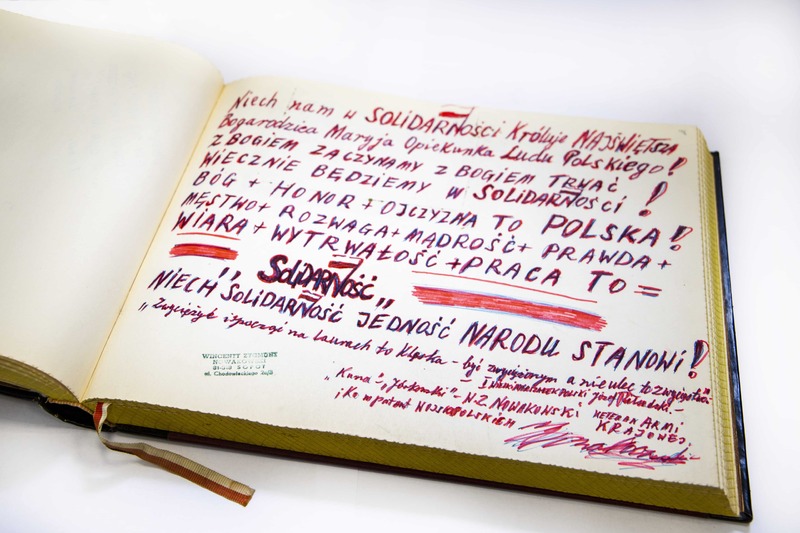 Niech nam w SOLiDARNOŚCi Króluje NAJŚWIĘTSZA
Bogarodzica Maryja Opiekunka Ludu Polskiego!
Z BOGIEM ZACZYNAMY Z BOGIEM TRWAĆ
WIECZNIE BĘDZIEMY W SOLIDARNOŚCI!
BÓG + HONOR + OJCZYZNA TO POLSKA!
MĘSTWO + ROZWAGA + MĄDROŚĆ + PRAWDA +
WIARA + WYTRWAŁOŚĆ + PRACA TO =
„SOLiDARNOŚĆ„
NIECH SOLiDARNOŚĆ JEDNOŚĆ NARODU STANOWi!
„Zwyciężyć i spocząć na Laurach to Klęska - być zwyciężonym a nie ulec to zwycięstwo"
I Józef Piłsudski. -
„ - N.Z. NOWAKOWSKI WETERAN ARMI
KRAJOWEJ
WINCENTY ZYGMUNT
NOWAKOWSKI
SOPOT
ul. Chodowieckiego